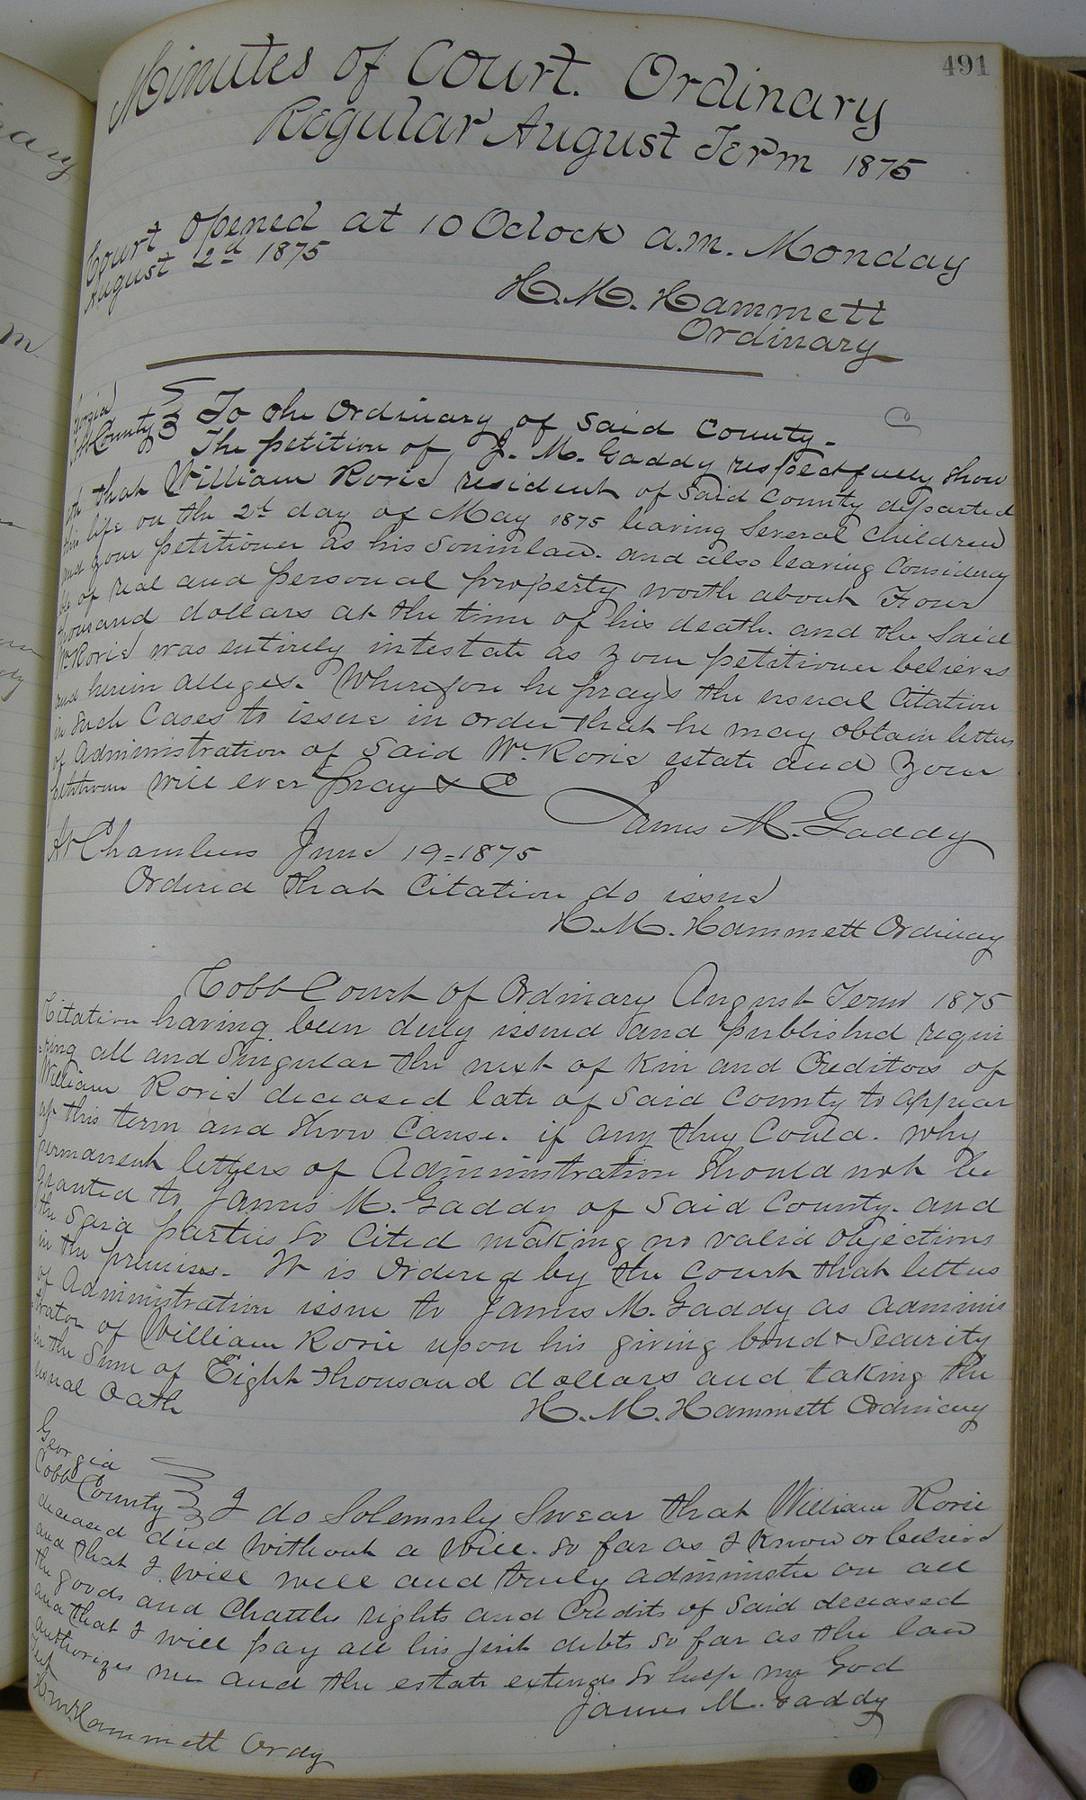 491
Minutes of Court. Ordinary
Regular August Term 1875
Court opened at 10 Oclock a.m. Monday
August 2d 1875
H. M. Hammett
Ordinary
Georgia
Cobb County To the Ordinary of Said County.
The petition of J. M. Gaddy respectfully Show
eth that William Rorie resident of Said County departed
this life on the 2d day of May 1875 leaving Several Children
and your petitioner as his Soninlaw. and also leaving Considera
ble of real and personal property worth about Four
thousand dollars at the time of his death. and the Said
Wm Rorie was entirely intestate as your petitioner believes
and herein alleges. Wherefore he prays the usual Citation
in Such Cases to issue in order that he may obtain letters
of Administration of Said Wm Rorie estate and your
petitioner will ever pray &C
James M. Gaddy
At Chambers June 19=1875
Ordered that Citation do issue
H. M. Hammett Ordinary
Cobb Court of Ordinary August Term 1875
Citation having been duly issued and published requi
=ring all and Singular the next of Kin and Creditors of
William Rorie deceased late of Said County to appear
at this term and Show Cause. if any they Could. why
permanent letters of Administration Should not be
Granted to James M. Gaddy of Said County. and
the Said parties So Cited making no valid objections
in the premises. It is Ordered by the Court that letters
of Administration issue to James M. Gaddy as adminis
trator of William Rorie upon his giving bond & Security
in the Sum of Eight thousand dollars and taking the
usual Oath
H. M. Hammett Ordinary
Georgia
Cobb County I do Solemnly Swear that William Rorie
deceased died without a Will. So far as I know or believe
and that I will well and truly administer on all
the goods and Chattles rights and Credits of Said deceased
and that I will pay all his just debts So far as the law
authorizes me and the estate extends So help my God
James M. Gaddy
Test
H. M. Hammett Ordy